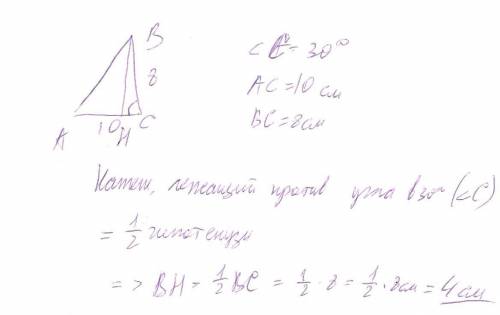 B
∠C = 30°
8
AC = 10 см
A 10 H C
BC = 8 см
Катет, лежащий против угла в 30° (∠C)
= 1/2 гипотенузы
=> BH = 1/2 BC = 1/2 · 8 = 1/2 · 8 см = 4 см